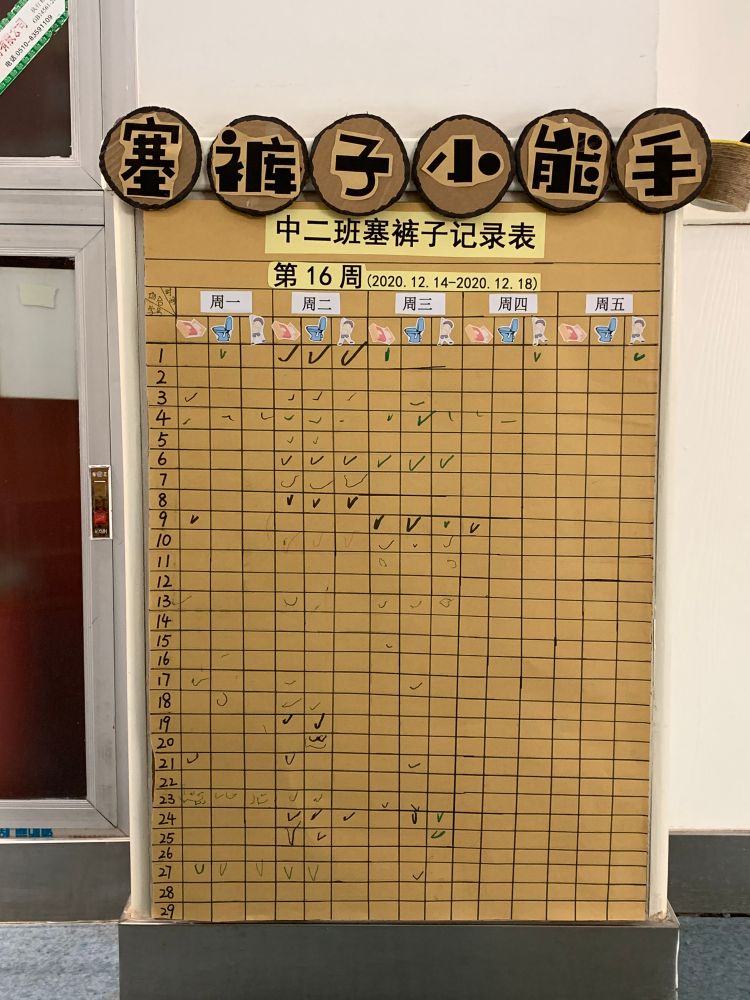 塞裤子小能手
中二班塞裤子记录表
第16周(2020.12.14-2020.12.18)
周一 周二 周三 周四 周五
1
2
3
4
5
6
7
8
9
10
11
12
13
14
15
16
17
18
19
20
21
22
23
24
25
26
27
28
29
有限公司
电话:0510-83591109